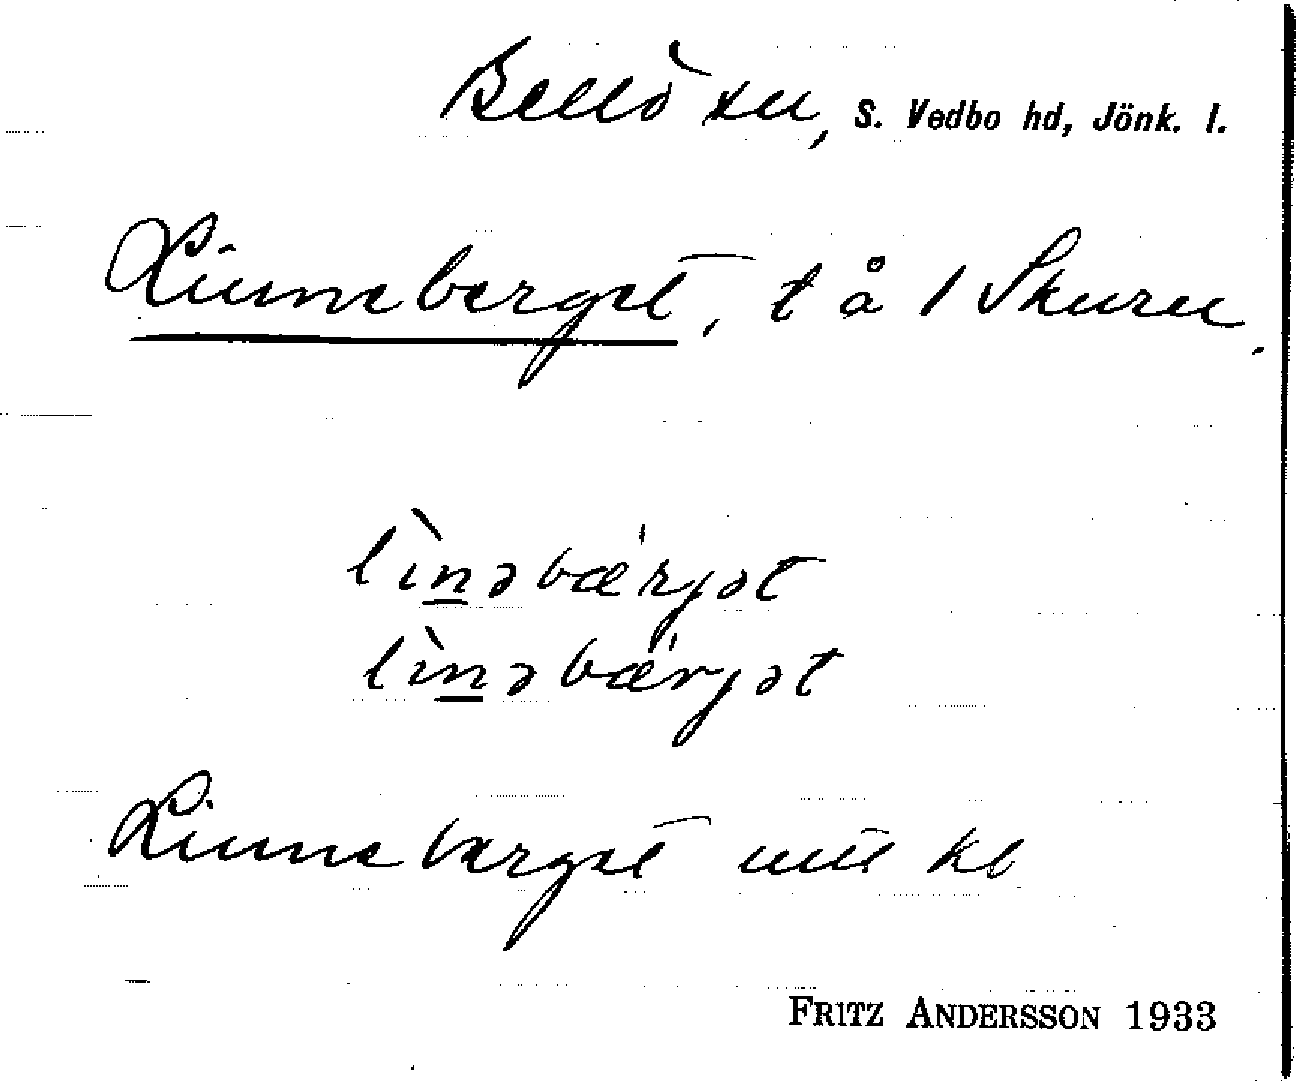 Bellö sn, S. Vedbo hd, Jönk. l.
Linneberget, t å 1 Skuru.
lìnəbǽrjət
lìnəbǽrjət
Linneberget uttl kb
FRITZ ANDERSSON 1933